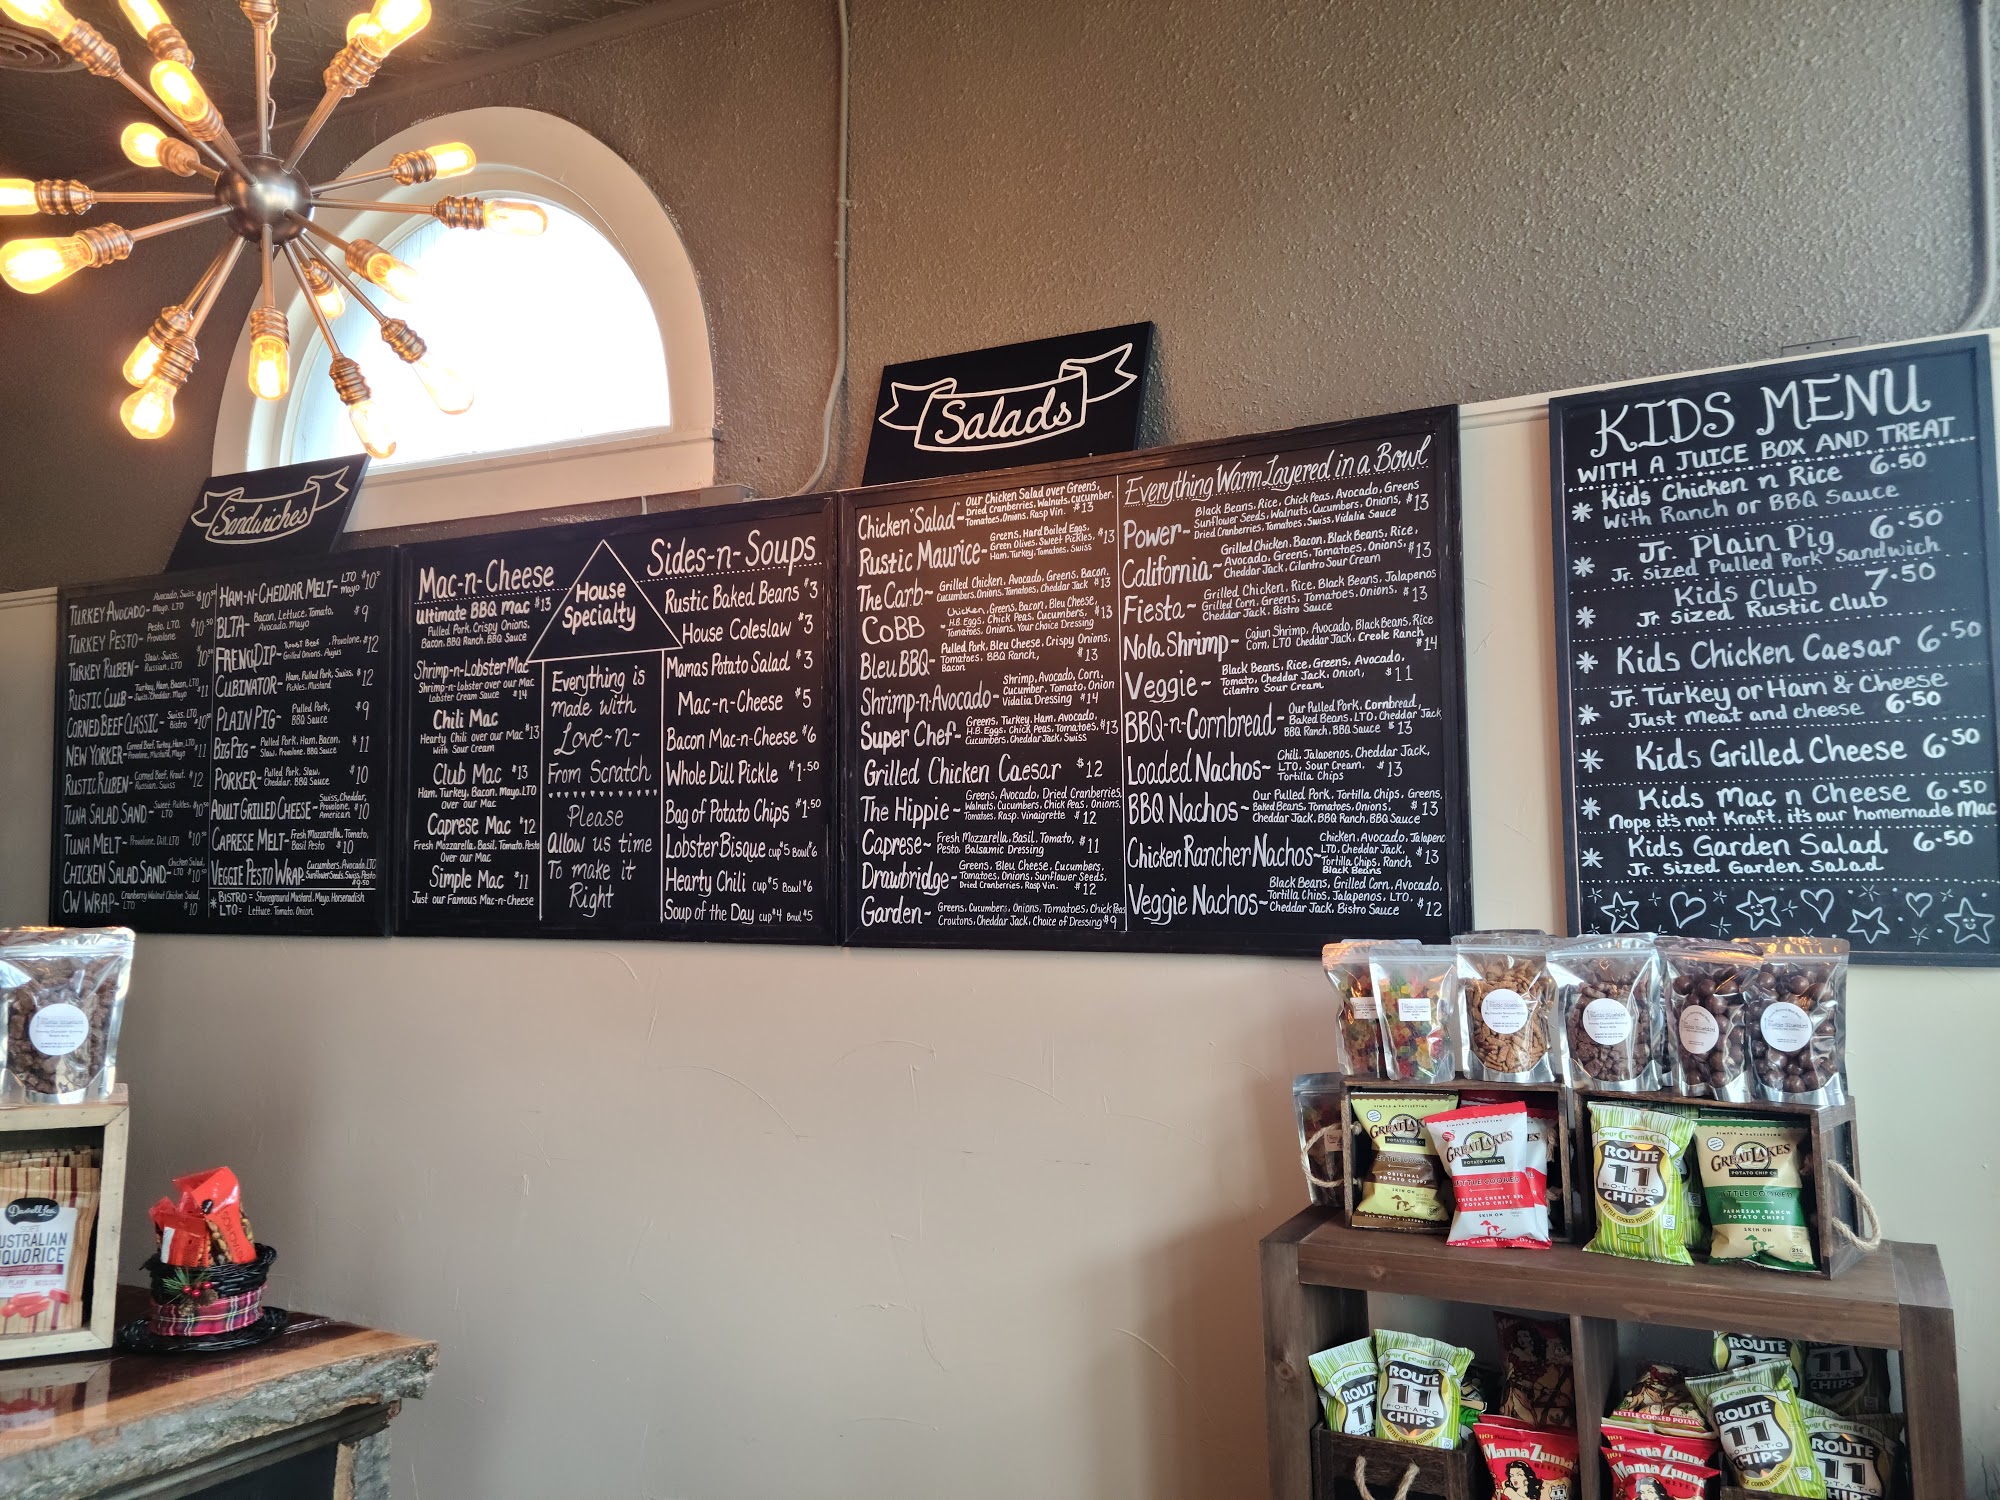 Sandwiches
TURKEY AVOCADO- Avocado, Swiss, Mayo, LTO $10.50
TURKEY PESTO- Pesto, LTO, Provolone $10.50
TURKEY RUBEN- Slaw, Swiss, Russian, LTO $10.50
RUSTIC CLUB- Turkey, Ham, Bacon, LTO Swiss, Cheddar, Mayo $11
CORNED BEEF CLASSIC- Swiss, LTO Bistro $10.50
NEW YORKER- Corned Beef, Turkey, Ham, LTO Provolone, Mustard, Mayo $11
RUSTIC RUBEN- Corned Beef, Kraut, Russian, Swiss $12
TUNA SALAD SAND- Sweet Pickles, LTO $10.50
TUNA MELT- Provolone, Dill, LTO $10.50
CHICKEN SALAD SAND- Chicken Salad, LTO $10.50
CW WRAP- Cranberry Walnut Chicken Salad, LTO $10
HAM-N-CHEDDAR MELT- LTO Mayo $10.50
BLTA- Bacon, Lettuce, Tomato, Avocado, Mayo $9
FRENCH DIP- Roast Beef, Provolone, Grilled Onions, Aujus $12
CUBINATOR- Ham, Pulled Pork, Swiss, Pickles, Mustard $12
PLAIN PIG- Pulled Pork, BBQ Sauce $9
BIG PIG- Pulled Pork, Ham, Bacon, Slaw, Provolone, BBQ Sauce $11
PORKER- Pulled Pork, Slaw, Cheddar, BBQ Sauce $10
ADULT GRILLED CHEESE- Swiss, Cheddar, Provolone, American $10
CAPRESE MELT- Fresh Mozzarella, Tomato, Basil Pesto $10
VEGGIE PESTO WRAP- Cucumbers, Avocado, LTO Sunflower Seeds, Swiss, Pesto $9.50
* BISTRO = Stoneground Mustard, Mayo, Horseradish
LTO = Lettuce, Tomato, Onion
Mac-n-Cheese
Ultimate BBQ Mac $13
Pulled Pork, Crispy Onions,
Bacon, BBQ Ranch, BBQ Sauce
Shrimp-n-Lobster Mac
Shrimp-n-Lobster over our Mac
Lobster Cream Sauce $14
Chili Mac
Hearty Chili over our Mac $13
With Sour Cream
Club Mac $13
Ham, Turkey, Bacon, Mayo, LTO
Over our Mac
Caprese Mac $12
Fresh Mozzarella, Basil, Tomato, Pesto
Over our Mac
Simple Mac $11
Just our Famous Mac-n-Cheese
House
Specialty
Everything is
made with
Love-n-
From Scratch
Please
Allow us time
To make it
Right
Sides-n-Soups
Rustic Baked Beans $3
House Coleslaw $3
Mamas Potato Salad $3
Mac-n-Cheese $5
Bacon Mac-n-Cheese $6
Whole Dill Pickle $1.50
Bag of Potato Chips $1.50
Lobster Bisque cup $5 Bowl $6
Hearty Chili cup $5 Bowl $6
Soup of the Day cup $4 Bowl $5
Salads
Chicken "Salad"~ Our Chicken Salad over Greens,
Dried Cranberries, Walnuts, Cucumber,
Tomatoes, Onions, Rasp Vin. $13
Rustic Maurice- Greens, Hard Boiled Eggs,
Green Olives, Sweet Pickles, $13
Ham, Turkey, Tomatoes, Swiss
The Carb- Grilled Chicken, Avocado, Greens, Bacon,
Cucumbers, Onions, Tomatoes, Cheddar Jack $13
CoBB Chicken, Greens, Bacon, Bleu Cheese,
H.B. Eggs, Chick Peas, Cucumbers, $13
Tomatoes, Onions, Your Choice Dressing
Bleu BBQ- Pulled Pork, Bleu Cheese, Crispy Onions,
Tomatoes, BBQ Ranch, $13
Bacon
Shrimp-n-Avocado- Shrimp, Avocado, Corn,
Cucumber, Tomato, Onion
Vidalia Dressing $14
Super Chef- Greens, Turkey, Ham, Avocado,
H.B. Eggs, Chick Peas, Tomatoes, $13
Cucumbers, Cheddar Jack, Swiss
Grilled Chicken Caesar $12
The Hippie- Greens, Avocado, Dried Cranberries,
Walnuts, Cucumbers, Chick Peas, Onions,
Tomatoes, Rasp. Vinaigrette $12
Caprese- Fresh Mozzarella, Basil, Tomato, $11
Pesto Balsamic Dressing
Drawbridge- Greens, Bleu Cheese, Cucumbers,
Tomatoes, Onions, Sunflower Seeds,
Dried Cranberries, Rasp Vin. $12
Garden~ Greens, Cucumbers, Onions, Tomatoes, Chick Peas
Croutons, Cheddar Jack, Choice of Dressing $9
Everything Warm Layered in a Bowl
Power~ Black Beans, Rice, Chick Peas, Avocado, Greens
Sunflower Seeds, Walnuts, Cucumbers, Onions, $13
Dried Cranberries, Tomatoes, Swiss, Vidalia Sauce
California~ Grilled Chicken, Bacon, Black Beans, Rice,
Avocado, Greens, Tomatoes, Onions, $13
Cheddar Jack, Cilantro Sour Cream
Fiesta~ Grilled Chicken, Rice, Black Beans, Jalapenos
Grilled Corn, Greens, Tomatoes, Onions, $13
Cheddar Jack, Bistro Sauce
Nola Shrimp~ Cajun Shrimp, Avocado, Black Beans, Rice
Corn, LTO Cheddar Jack, Creole Ranch $14
Veggie~ Black Beans, Rice, Greens, Avocado,
Tomato, Cheddar Jack, Onion, $11
Cilantro Sour Cream
BBQ-n-Cornbread- Our Pulled Pork, Cornbread,
Baked Beans, LTO, Cheddar Jack
BBQ Ranch, BBQ Sauce $13
Loaded Nachos~ Chili, Jalapenos, Cheddar Jack,
LTO, Sour Cream, $13
Tortilla Chips
BBQ Nachos~ Our Pulled Pork, Tortilla Chips, Greens,
Baked Beans, Tomatoes, Onions, $13
Cheddar Jack, BBQ Ranch, BBQ Sauce
Chicken Rancher Nachos~ Chicken, Avocado, Jalapeno
LTO, Cheddar Jack, $13
Tortilla Chips, Ranch
Black Beans
Veggie Nachos~ Black Beans, Grilled Corn, Avocado,
Tortilla Chips, Jalapenos, LTO, $12
Cheddar Jack, Bistro Sauce
KIDS MENU
WITH A JUICE BOX AND TREAT
* Kids Chicken n Rice 6.50
With Ranch or BBQ Sauce
* Jr. Plain Pig 6.50
Jr. Sized Pulled Pork Sandwich
* Kids Club 7.50
Jr Sized Rustic Club
* Kids Chicken Caesar 6.50
* Jr. Turkey or Ham & Cheese
Just Meat and Cheese 6.50
* Kids Grilled Cheese 6.50
* Kids Mac n Cheese 6.50
Nope it's not Kraft, it's our homemade Mac
* Kids Garden Salad 6.50
Jr. Sized Garden Salad
Rustic Bluebird
Darrell Lea
SOFT
AUSTRALIAN
LIQUORICE
GREAT LAKES
POTATO CHIP CO
KETTLE COOKED
ORIGINAL
POTATO CHIPS
SKIN ON
GREAT LAKES
POTATO CHIP CO
KETTLE COOKED
MICHIGAN CHERRY BBQ
POTATO CHIPS
SKIN ON
Sour Cream & Chive
ROUTE
11
POTATO
CHIPS
SIMPLE & SATISFYING
GREAT LAKES
POTATO CHIP CO
KETTLE COOKED
PARMESAN RANCH
POTATO CHIPS
SKIN ON
ROUTE
11
Sour Cream & Chive
ROUTE
11
POTATO
CHIPS
Mama Zuma
KETTLE COOKED POTATO
Mama Zuma
ROUTE
11
POTATO
CHIPS
ROUTE
11
CHIPS